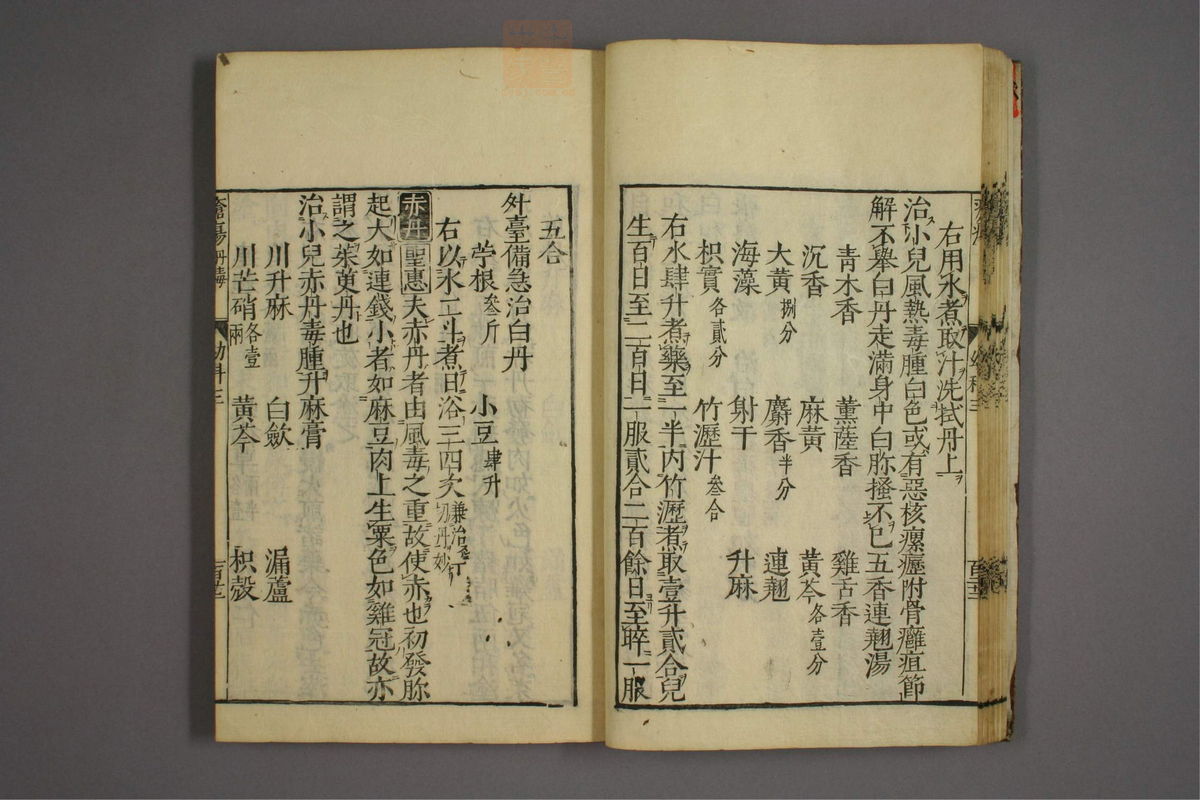 右用水煮取汁洗拭丹上
治小兒風熱毒腫白色或有惡核瘰癧附骨癰疽節
解不舉白丹走滿身中白胗搔不已五香連翹湯
青木香 薰陸香 雞舌香
沉香 麻黃 黃芩各壹分
大黃捌分 麝香半分 連翹
海藻 射干 升麻
枳實各貳分 竹瀝汁叁合
右水肆升煮藥至一半內竹瀝煮取壹升貳合兒
生百日至二百日一服貳合二百餘日至晬一服
五合
外臺備急治白丹
苧根叁斤 小豆肆升
右以水二斗煮日浴三四次兼治
赤丹 聖惠 夫赤丹者由風毒之重故使赤也初發胗
起大如連錢小者如麻豆肉上生粟色如雞冠故亦
謂之茱萸丹也
治小兒赤丹毒腫升麻膏
川升麻 白歛 漏蘆
川芒硝各壹兩 黃芩 枳殼
瘡瘍丹毒 幼科三